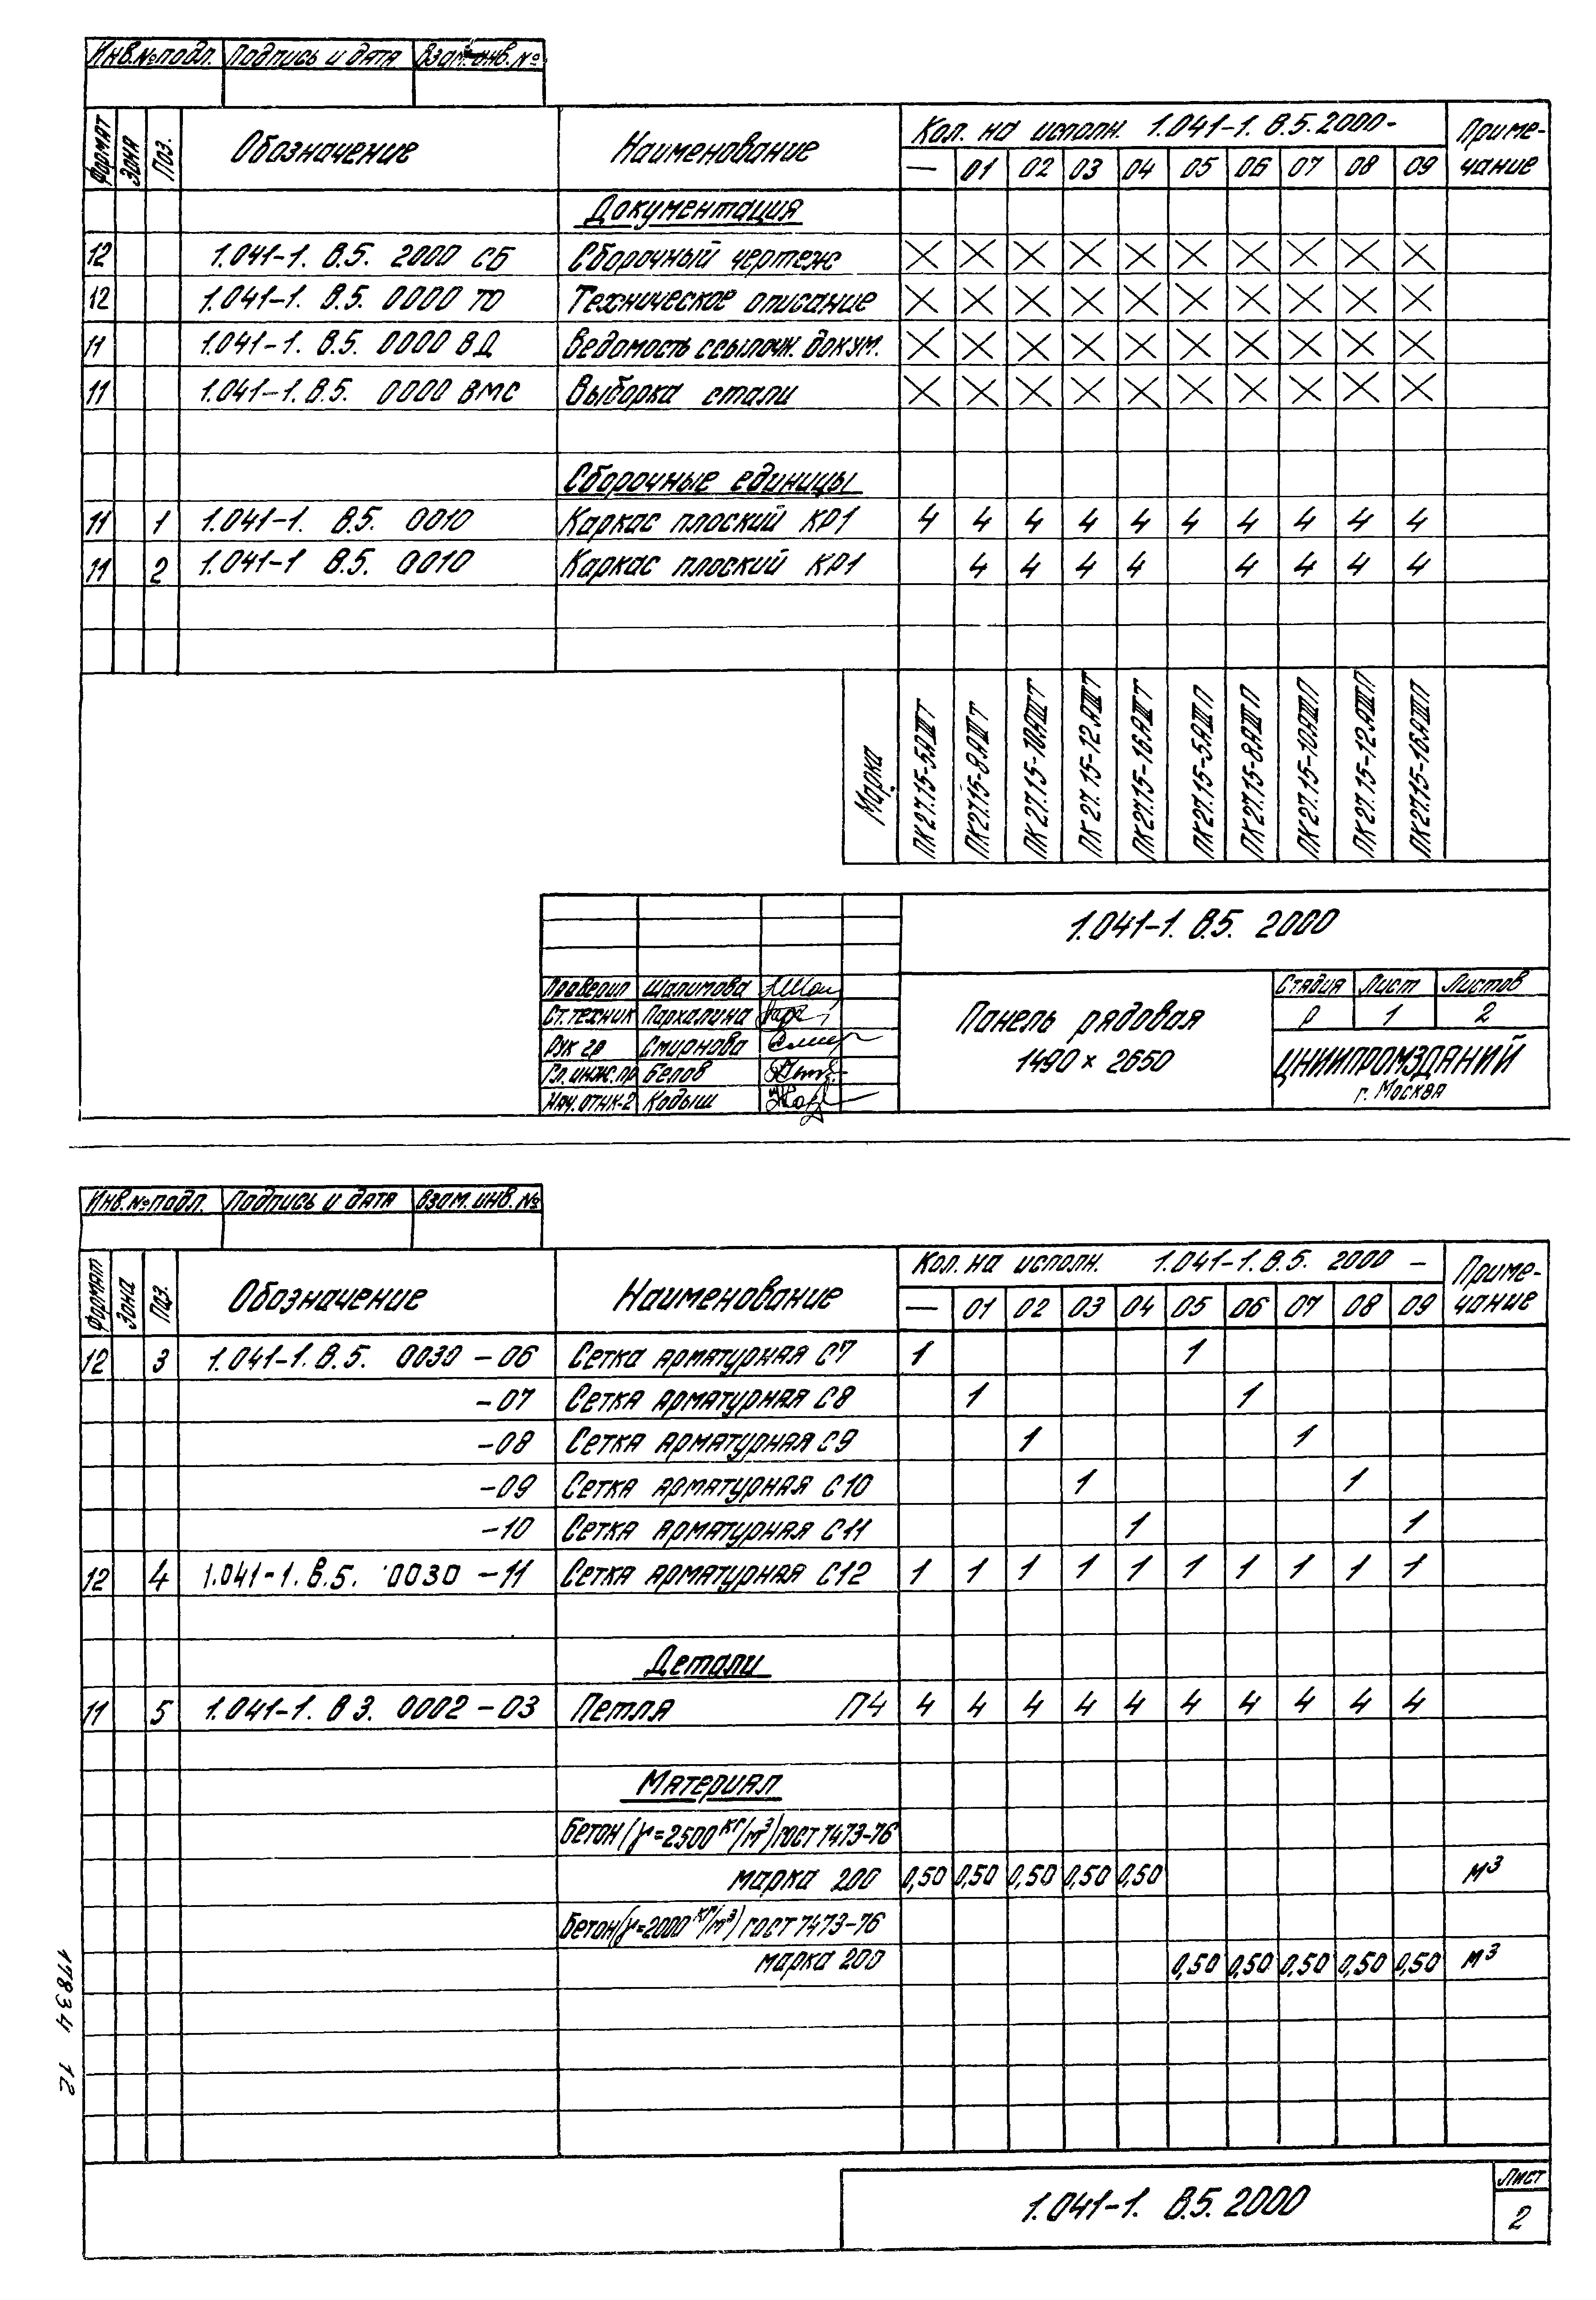 Инв.№подл. Подпись и дата Взам.инв.№
Формат Зона Поз. Обозначение Наименование Кол. на исполн. 1.041-1. В.5.2000- Приме-
чание
— 01 02 03 04 05 06 07 08 09
Документация
12 1.041-1. В.5. 2000 СБ Сборочный чертеж X X X X X X X X X X
12 1.041-1. В.5. 0000 ТО Техническое описание X X X X X X X X X X
11 1.041-1. В.5. 0000 ВД Ведомость ссылочн. докум. X X X X X X X X X X
11 1.041-1. В.5. 0000 ВМС Выборка стали X X X X X X X X X X
Сборочные единицы
11 1 1.041-1. В.5. 0010 Каркас плоский КР1 4 4 4 4 4 4 4 4 4 4
11 2 1.041-1 В.5. 0010 Каркас плоский КР1 4 4 4 4 4 4 4 4
Марка
ПК27.15-5АIIIТ
ПК27.15-8АIIIТ
ПК 27.15-10АIIIТ
ПК 27.15-12АIIIТ
ПК27.15-16АIIIТ
ПК27.15-5АIIIП
ПК27.15-8АIIIП
ПК27.15-10АIIIП
ПК27.15-12АIIIП
ПК27.15-16АIIIП
1.041-1. В.5. 2000
Проверил Шапимова
Ст.техник Пархалина
Рук гр Смирнова
Гл.инж.пр Белов
Нач.отик-2 Кодыш
Панель рядовая
1490 × 2650
Стадия Лист Листов
Р 1 2
ЦНИИПРОМЗДАНИЙ
г. Москва
Инв.№подл. Подпись и дата Взам.инв.№
Формат Зона Поз. Обозначение Наименование Кол. на исполн. 1.041-1.В.5. 2000 — Приме-
чание
— 01 02 03 04 05 06 07 08 09
12 3 1.041-1.В.5. 0030 -06 Сетка арматурная С7 1 1
-07 Сетка арматурная С8 1 1
-08 Сетка арматурная С9 1 1
-09 Сетка арматурная С10 1 1
-10 Сетка арматурная С11 1 1
12 4 1.041-1.В.5. 0030 -11 Сетка арматурная С12 1 1 1 1 1 1 1 1 1 1
Детали
11 5 1.041-1. В 3. 0002 -03 Петля П4 4 4 4 4 4 4 4 4 4 4
Материал
Бетон (γ=2500 кг/м³) ГОСТ 7473-76
марка 200 0,50 0,50 0,50 0,50 0,50 м³
Бетон (γ=2000 кг/м³) ГОСТ 7473-76
марка 200 0,50 0,50 0,50 0,50 0,50 м³
17834 12
1.041-1. В.5. 2000
Лист
2